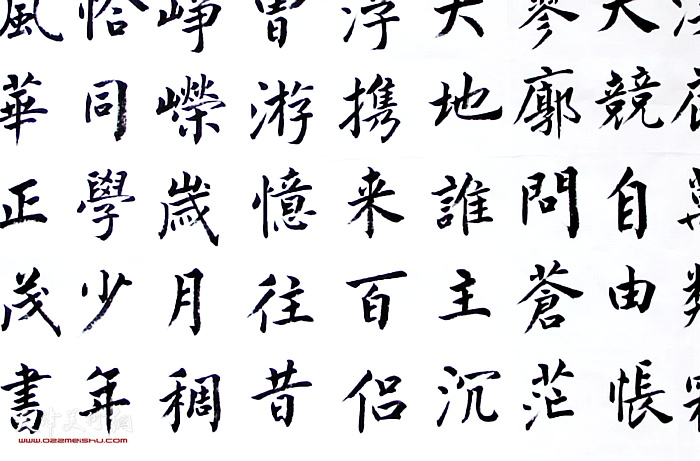 天競自由悵
寥廓問蒼茫
大地誰主沉
浮携来百侶
曾游憶往昔
崢嶸歲月稠
恰同學少年
風華正茂書
www.022meishu.com